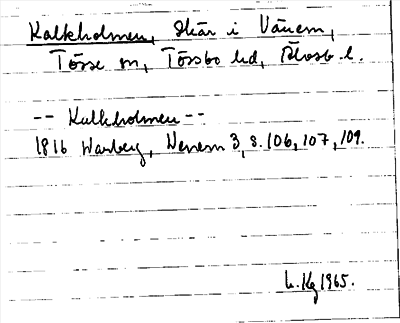 Kalkholmen, Skär i Vänern,
Tösse sn, Tössbo hd, Älvsb. l.
-- Kalkholmen --
1816 Warberg, Wenern 3, s. 106, 107, 109.
1965.